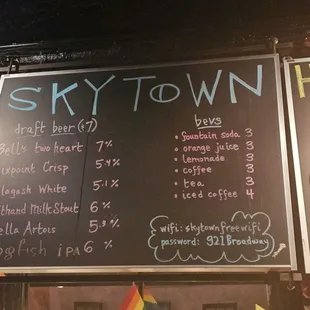 SKYTOWN
draft beer ($7)
Bell's two heart 7%
Sixpoint Crisp 5.4%
Allagash White 5.1%
Left hand Milk Stout 6%
Stella Artois 5.3%
Dogfish iPA 6%
bevs
• fountain soda 3
• orange juice 3
• lemonade 3
• coffee 3
• tea 3
• iced coffee 4
wifi: skytownfreewifi
password: 921Broadway